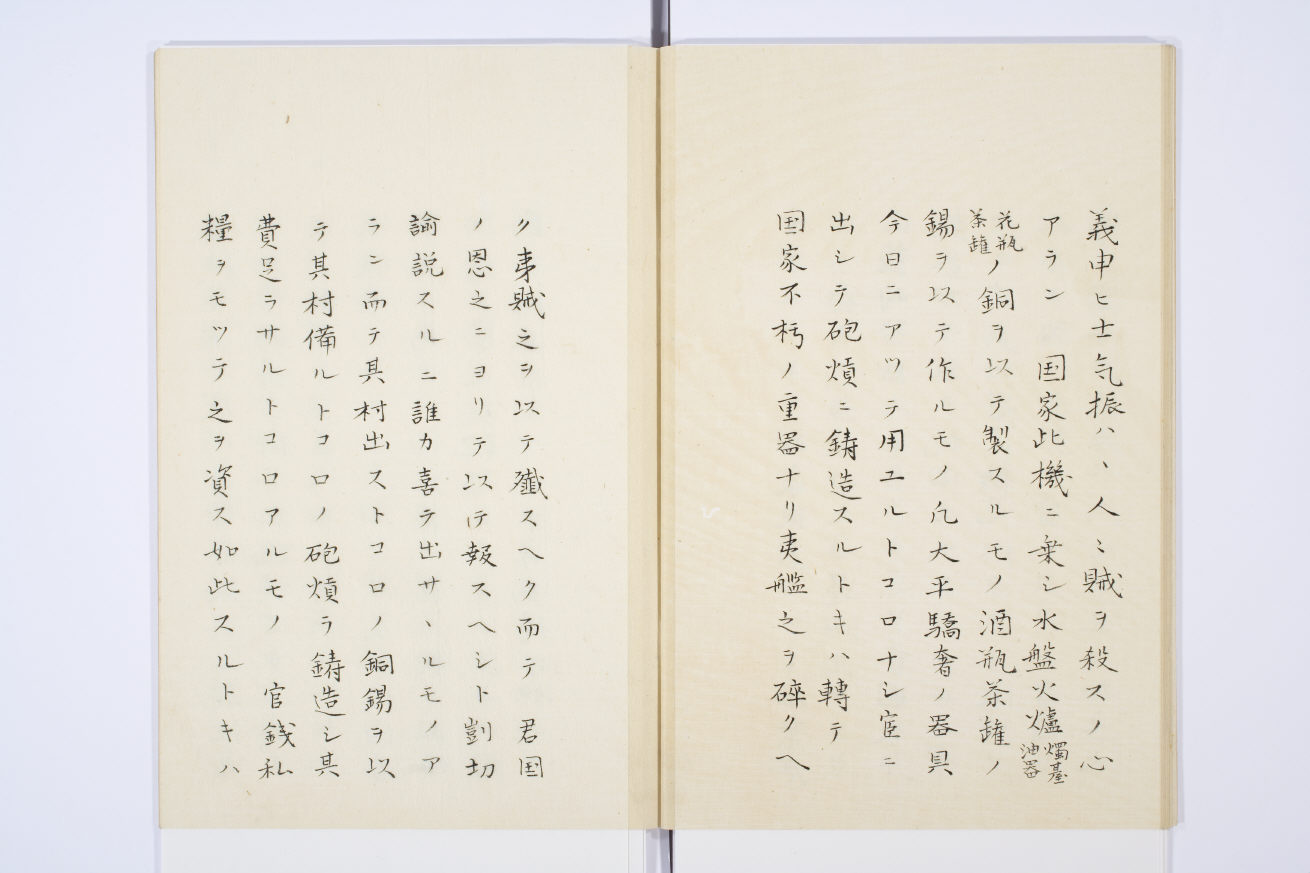 義申ヒ士気振ハヽ人〻賊ヲ殺スノ心
アラン　国家此機ニ乗シ水盤火爐燭臺油器
花瓶茶罐ノ銅ヲ以テ製スルモノ酒瓶茶罐ノ
錫ヲ以テ作ルモノ凡大平驕奢ノ器具
今日ニアツテ用ユルトコロナシ宦ニ
出シテ砲熕ニ鋳造スルトキハ轉テ
国家不朽ノ重器ナリ夷艦之ヲ碎クヘ
ク夷賊之ヲ以テ殲スヘク而テ　君国
ノ恩之ニヨリテ以テ報スヘシト剴切
諭説スルニ誰カ喜テ出サヽルモノア
ランニ而テ其村出ストコロノ銅錫ヲ以
テ其村備ルトコロノ砲熕ラ鋳造シ其
費足ラサルトコロアルモノ　官銭私
糧ヲモツテ之ヲ資ス如此スルトキハ